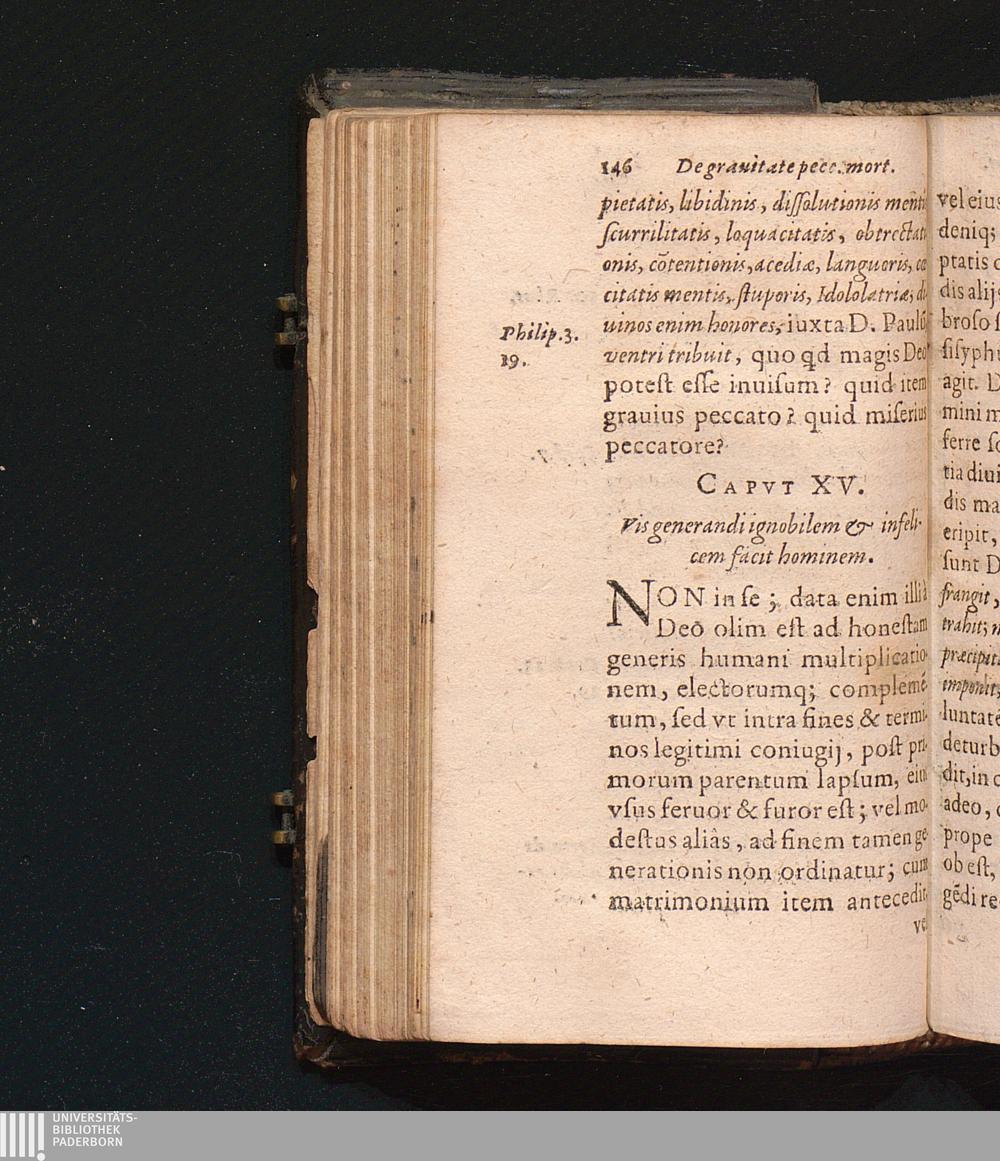 146 De grauitate pecc. mort.
pietatis, libidinis, dissolutionis menti
scurrilitatis, loquacitatis, obtrectati
onis, cōtentionis, acediæ, languoris, cæ
citatis mentis, stuporis, Idololatriæ; di
Philip. 3.
19.
uinos enim honores, iuxta D. Paulū,
ventri tribuit, quo qd magis Deo
potest esse inuisum? quid item
grauius peccato? quid miserius
peccatore?
CAPVT XV.
Vis generandi ignobilem & infeli-
cem facit hominem.
NON in se; data enim illi à
Deo olim est ad honestam
generis humani multiplicatio-
nem, electorumq; complemē-
tum, sed vt intra fines & termi-
nos legitimi coniugij, post pri-
morum parentum lapsum, eius
vsus feruor & furor est; vel mo-
destus aliàs, ad finem tamen ge-
nerationis non ordinatur; cum
matrimonium item antecedit,
ve
vel eius
deniq;
ptatis
dis alijs
broso
sisyphi
agit.
mini
ferre
tia diui
dis ma
eripit,
sunt D
frangit,
trahit;
præcipit
imponit,
luntate
deturb
dit, in
adeo,
prope
ob est,
gēdi re
UNIVERSITÄTS-
BIBLIOTHEK
PADERBORN